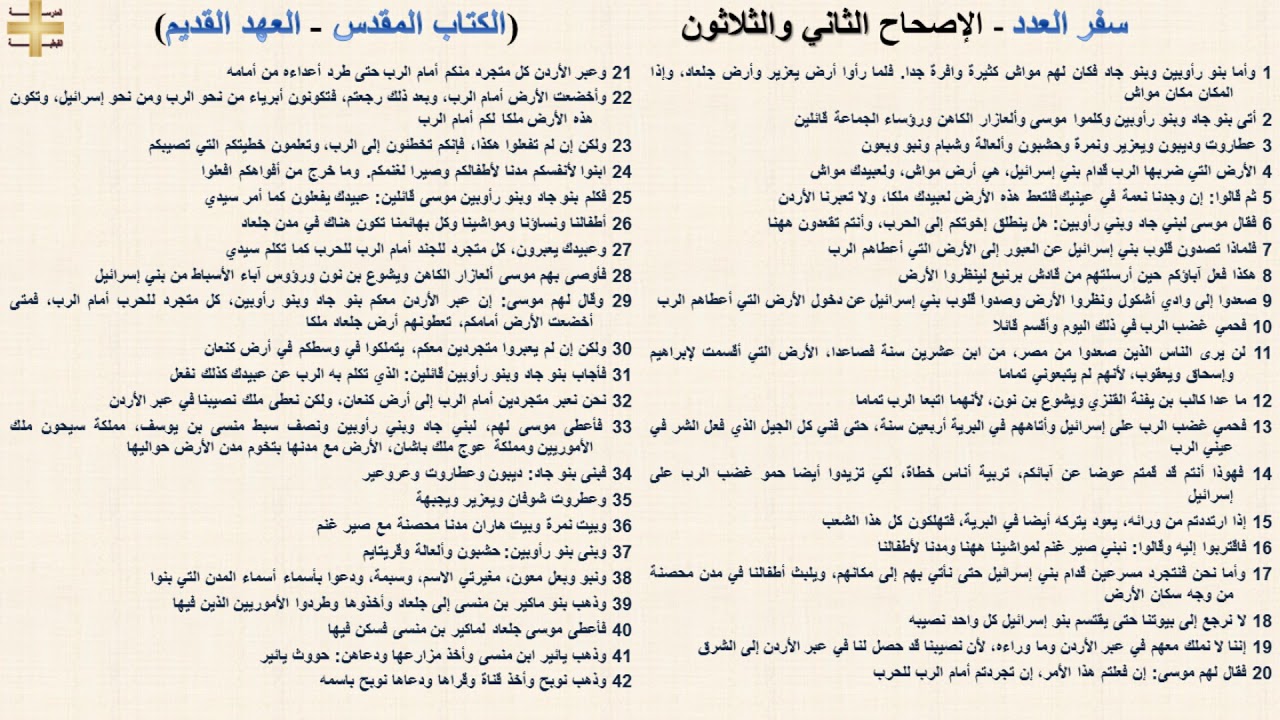 سفر العدد - الإصحاح الثاني والثلاثون
(الكتاب المقدس - العهد القديم)
1 وأما بنو رأوبين وبنو جاد فكان لهم مواش كثيرة وافرة جدا. فلما رأوا أرض يعزير وأرض جلعاد، وإذا
المكان مكان مواش
2 أتى بنو جاد وبنو رأوبين وكلموا موسى وألعازار الكاهن ورؤساء الجماعة قائلين
3 عطاروت وديبون ويعزير ونمرة وحشبون وألعالة وشبام ونبو وبعون
4 الأرض التي ضربها الرب قدام بني إسرائيل، هي أرض مواش، ولعبيدك مواش
5 ثم قالوا: إن وجدنا نعمة في عينيك فلتعط هذه الأرض لعبيدك ملكا، ولا تعبرنا الأردن
6 فقال موسى لبني جاد وبني رأوبين: هل ينطلق إخوتكم إلى الحرب، وأنتم تقعدون ههنا
7 فلماذا تصدون قلوب بني إسرائيل عن العبور إلى الأرض التي أعطاهم الرب
8 هكذا فعل آباؤكم حين أرسلتهم من قادش برنيع لينظروا الأرض
9 صعدوا إلى وادي أشكول ونظروا الأرض وصدوا قلوب بني إسرائيل عن دخول الأرض التي أعطاهم الرب
10 فحمي غضب الرب في ذلك اليوم وأقسم قائلا
11 لن يرى الناس الذين صعدوا من مصر، من ابن عشرين سنة فصاعدا، الأرض التي أقسمت لإبراهيم
وإسحاق ويعقوب، لأنهم لم يتبعوني تماما
12 ما عدا كالب بن يفنة القنزي ويشوع بن نون، لأنهما اتبعا الرب تماما
13 فحمي غضب الرب على إسرائيل وأتاههم في البرية أربعين سنة، حتى فني كل الجيل الذي فعل الشر في
عيني الرب
14 فهوذا أنتم قد قمتم عوضا عن آبائكم، تربية أناس خطاة، لكي تزيدوا أيضا حمو غضب الرب على
إسرائيل
15 إذا ارتددتم من ورائه، يعود يتركه أيضا في البرية، فتهلكون كل هذا الشعب
16 فاقتربوا إليه وقالوا: نبني صير غنم لمواشينا ههنا ومدنا لأطفالنا
17 وأما نحن فنتجرد مسرعين قدام بني إسرائيل حتى نأتي بهم إلى مكانهم، ويلبث أطفالنا في مدن محصنة
من وجه سكان الأرض
18 لا نرجع إلى بيوتنا حتى يقتسم بنو إسرائيل كل واحد نصيبه
19 إننا لا نملك معهم في عبر الأردن وما وراءه، لأن نصيبنا قد حصل لنا في عبر الأردن إلى الشرق
20 فقال لهم موسى: إن فعلتم هذا الأمر، إن تجردتم أمام الرب للحرب
21 وعبر الأردن كل متجرد منكم أمام الرب حتى طرد أعداءه من أمامه
22 وأخضعت الأرض أمام الرب، وبعد ذلك رجعتم، فتكونون أبرياء من نحو الرب ومن نحو إسرائيل، وتكون
هذه الأرض ملكا لكم أمام الرب
23 ولكن إن لم تفعلوا هكذا، فإنكم تخطئون إلى الرب، وتعلمون خطيتكم التي تصيبكم
24 ابنوا لأنفسكم مدنا لأطفالكم وصيرا لغنمكم. وما خرج من أفواهكم افعلوا
25 فكلم بنو جاد وبنو رأوبين موسى قائلين: عبيدك يفعلون كما أمر سيدي
26 أطفالنا ونساؤنا ومواشينا وكل بهائمنا تكون هناك في مدن جلعاد
27 وعبيدك يعبرون، كل متجرد للجند أمام الرب للحرب كما تكلم سيدي
28 فأوصى بهم موسى ألعازار الكاهن ويشوع بن نون ورؤوس آباء الأسباط من بني إسرائيل
29 وقال لهم موسى: إن عبر الأردن معكم بنو جاد وبنو رأوبين، كل متجرد للحرب أمام الرب، فمتى
أخضعت الأرض أمامكم، تعطونهم أرض جلعاد ملكا
30 ولكن إن لم يعبروا متجردين معكم، يتملكوا في وسطكم في أرض كنعان
31 فأجاب بنو جاد وبنو رأوبين قائلين: الذي تكلم به الرب عن عبيدك كذلك نفعل
32 نحن نعبر متجردين أمام الرب إلى أرض كنعان، ولكن نعطى ملك نصيبنا في عبر الأردن
33 فأعطى موسى لهم، لبني جاد وبني رأوبين ونصف سبط منسى بن يوسف، مملكة سيحون ملك
الأموريين ومملكة عوج ملك باشان، الأرض مع مدنها بتخوم مدن الأرض حواليها
34 فبنى بنو جاد: ديبون وعطاروت وعروعير
35 وعطروت شوفان ويعزير ويجبهة
36 وبيت نمرة وبيت هاران مدنا محصنة مع صير غنم
37 وبنى بنو رأوبين: حشبون وألعالة وقريتايم
38 ونبو وبعل معون، مغيرتي الاسم، وسبمة، ودعوا بأسماء أسماء المدن التي بنوا
39 وذهب بنو ماكير بن منسى إلى جلعاد وأخذوها وطردوا الأموريين الذين فيها
40 فأعطى موسى جلعاد لماكير بن منسى فسكن فيها
41 وذهب يائير ابن منسى وأخذ مزارعها ودعاهن: حووث يائير
42 وذهب نوبح وأخذ قناة وقراها ودعاها نوبح باسمه